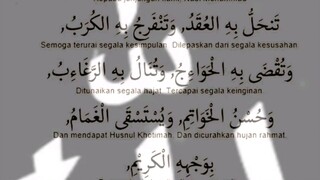 Kepada junjungan kami, Nabi Muhammad
تَنْحَلُّ بِهِ الْعُقَدُ, وَتَنْفَرِجُ بِهِ الْكُرَبُ,
Semoga terurai segala kesimpulan. Dilepaskan dari segala kesusahan
وَتُقْضَى بِهِ الْحَوَاءِجُ, وَتُنَالُ بِهِ الرَّغَاءِبُ,
Ditunaikan segala hajat. Tercapai segala keinginan.
وَحُسْنُ الْخَوَاتِمِ, وَيُسْتَسْقَى الْغَمَامُ,
Dan mendapat Husnul Khotimah. Dan dicurahkan hujan rahmat.
بِوَجْهِهِ الْكَرِيْمِ,